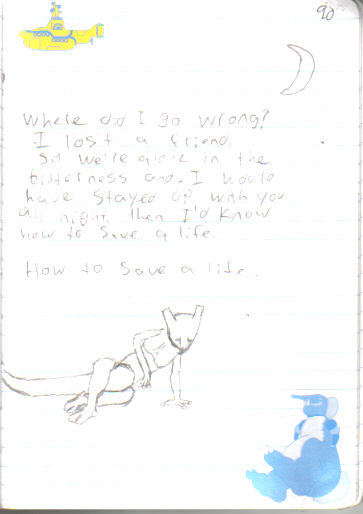 90
Where did I go wrong?
I lost a friend.
in the
bitterness and I would
have stayed up with you
all night. Then I'd know
how to save a life.
How to save a life.